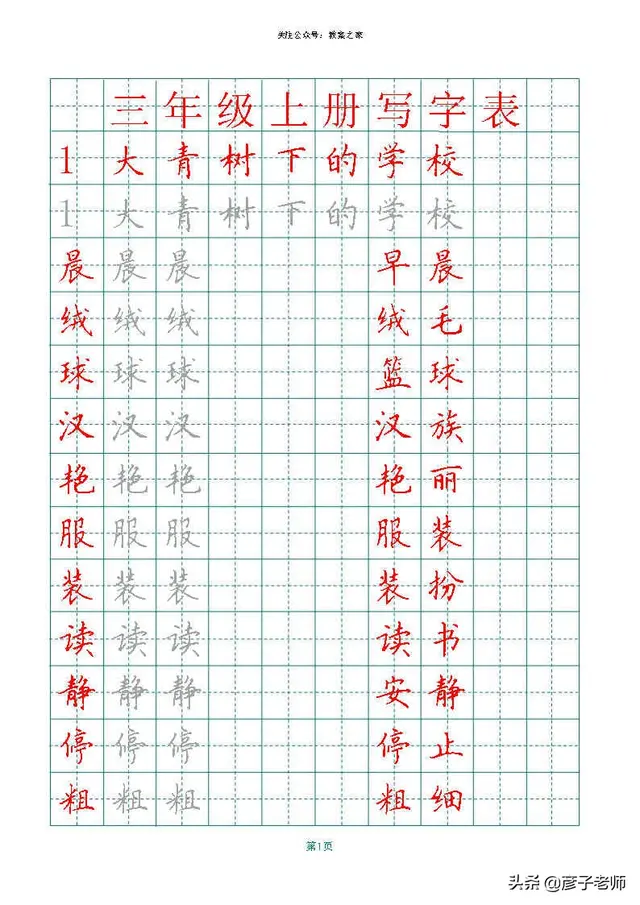 关注公众号：教案之家
三年级上册写字表
1大青树下的学校
1大青树下的学校
晨晨晨 早晨
绒绒绒 绒毛
球球球 篮球
汉汉汉 汉族
艳艳艳 艳丽
服服服 服装
装装装 装扮
读读读 读书
静静静 安静
停停停 停止
粗粗粗 粗细
第1页
头条 @彦子老师